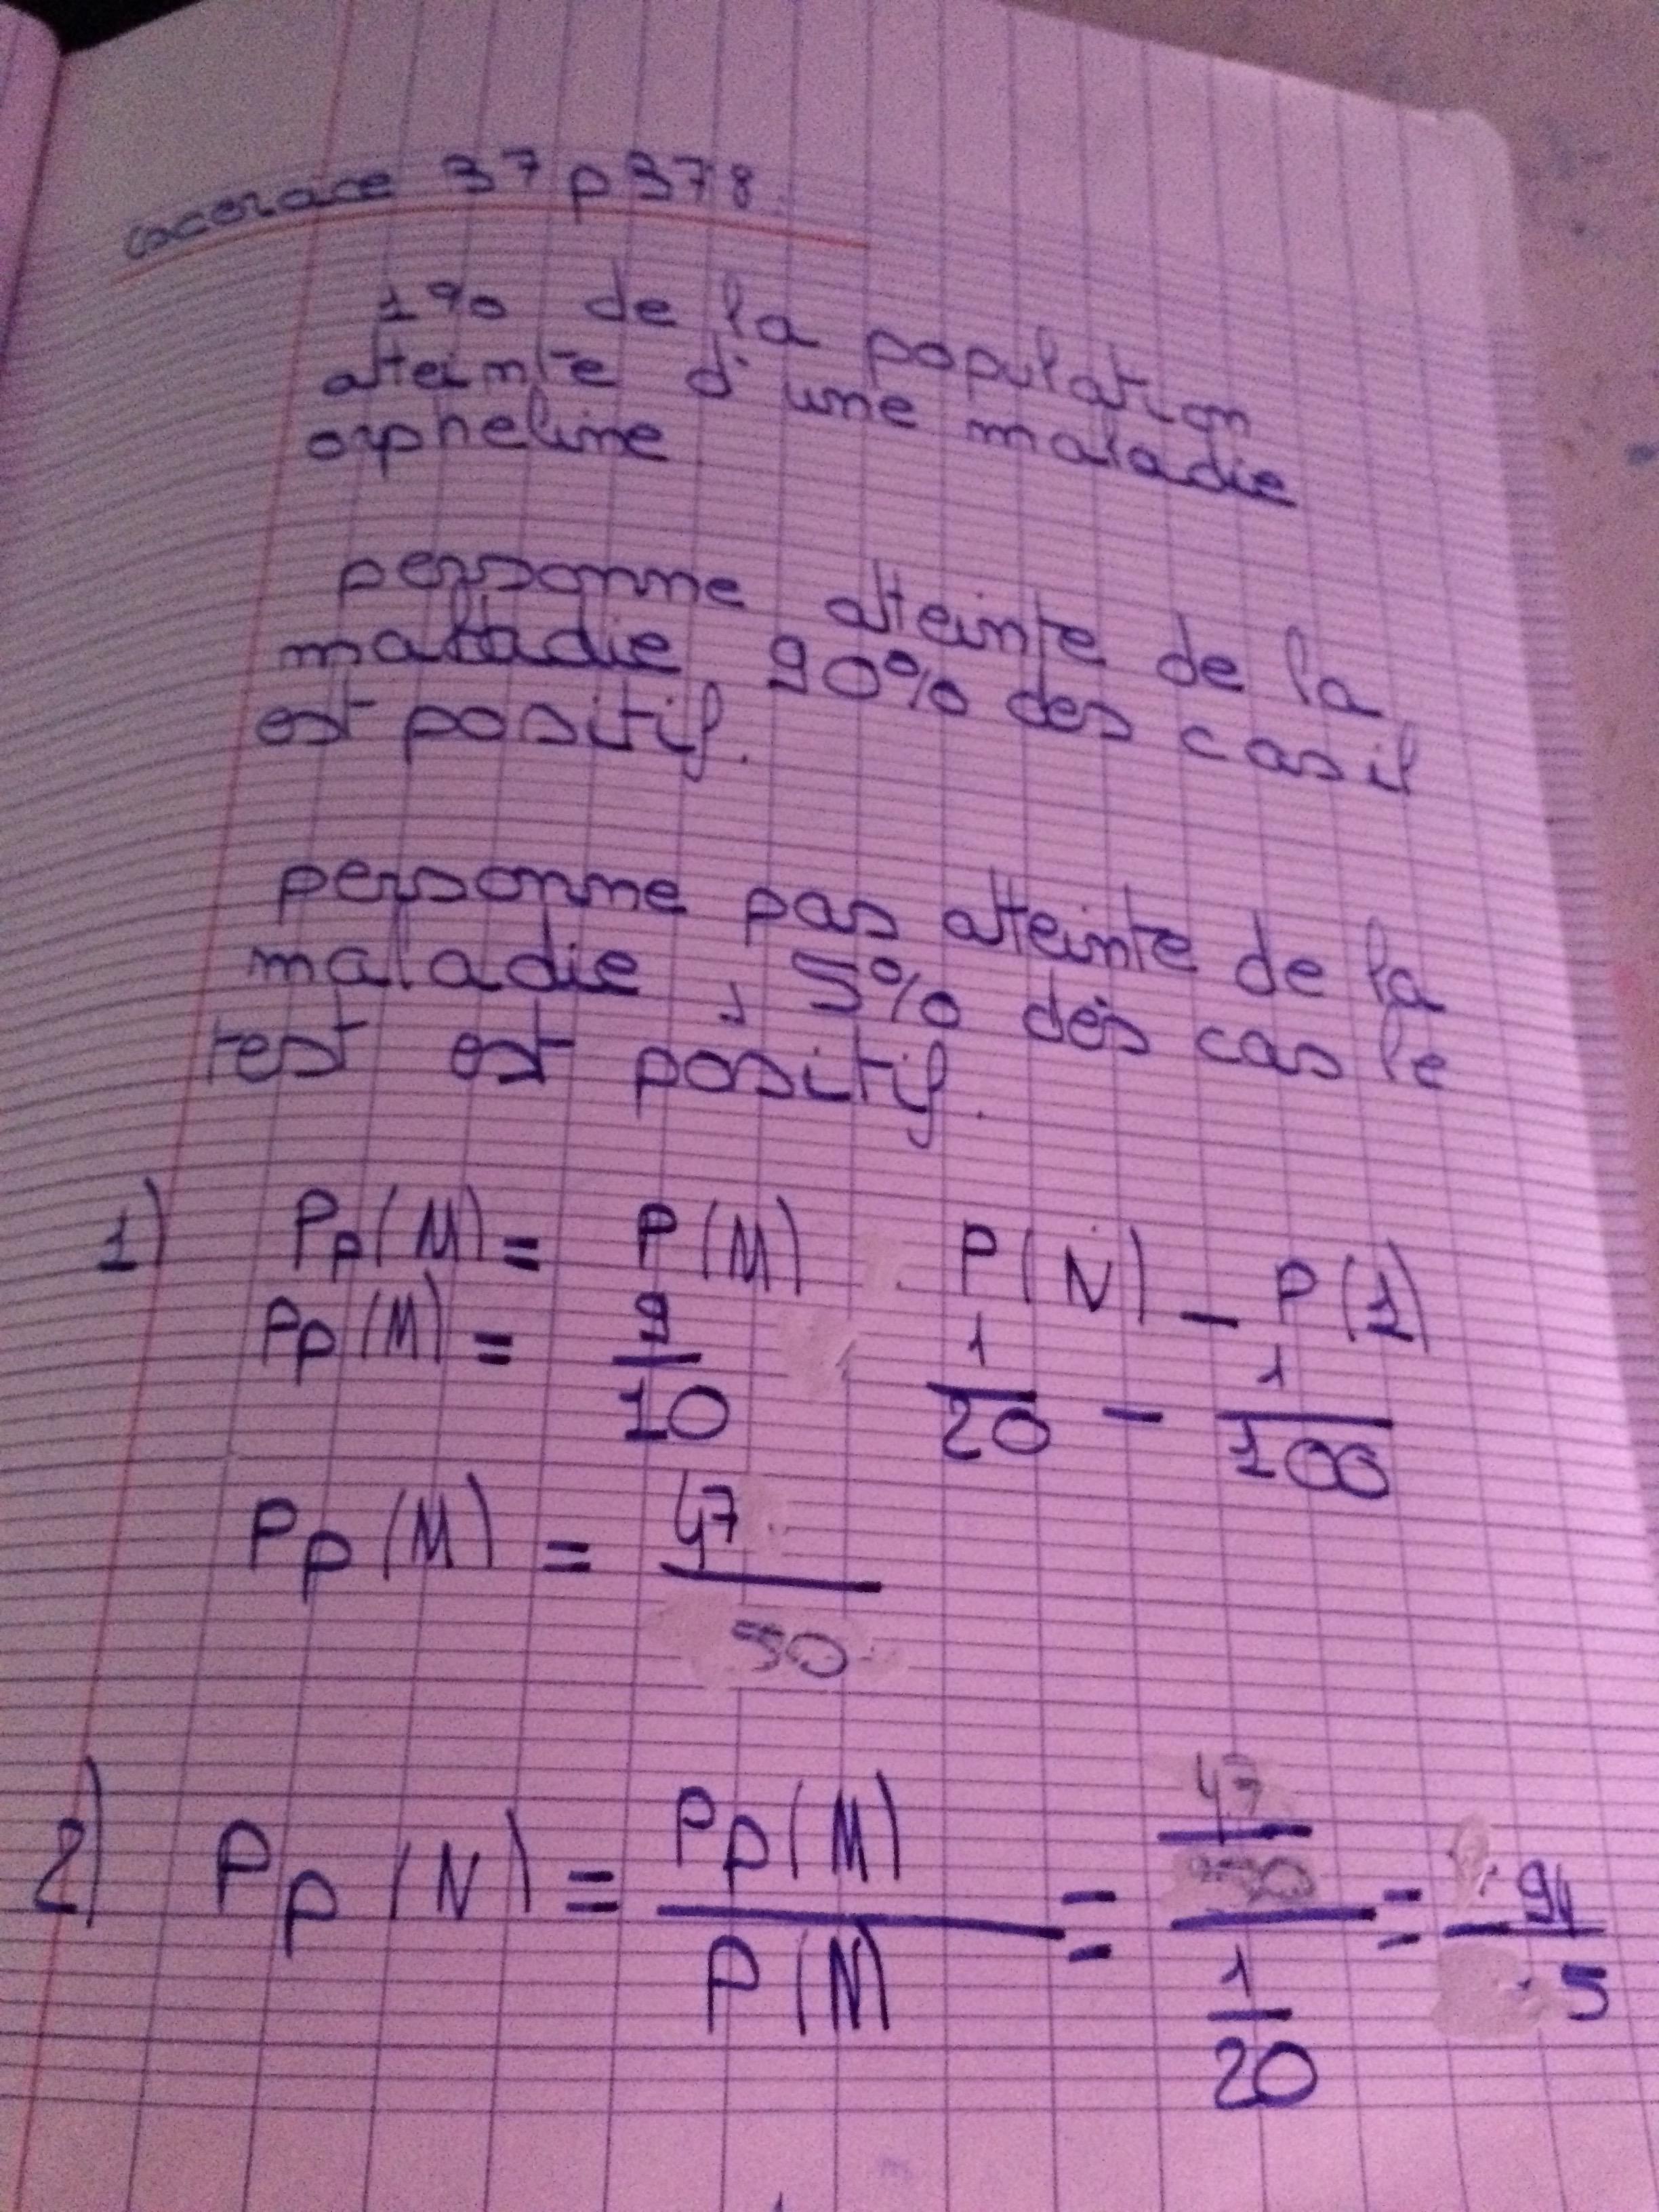 exercice 37 p 378.
1% de la population
atteinte d'une maladie
orpheline
personne atteinte de la
maladie 90% des cas il
est positif.
personne pas atteinte de la
maladie, 5% des cas le
test est positif.
1) Pp(M) = P(M) P(N) - P(1)
Pp(M) = 9/10 1/20 - 1/100
Pp(M) = 47/50
2) Pp(N) = Pp(M)/P(N) = 47/50/1/20 = 94/5